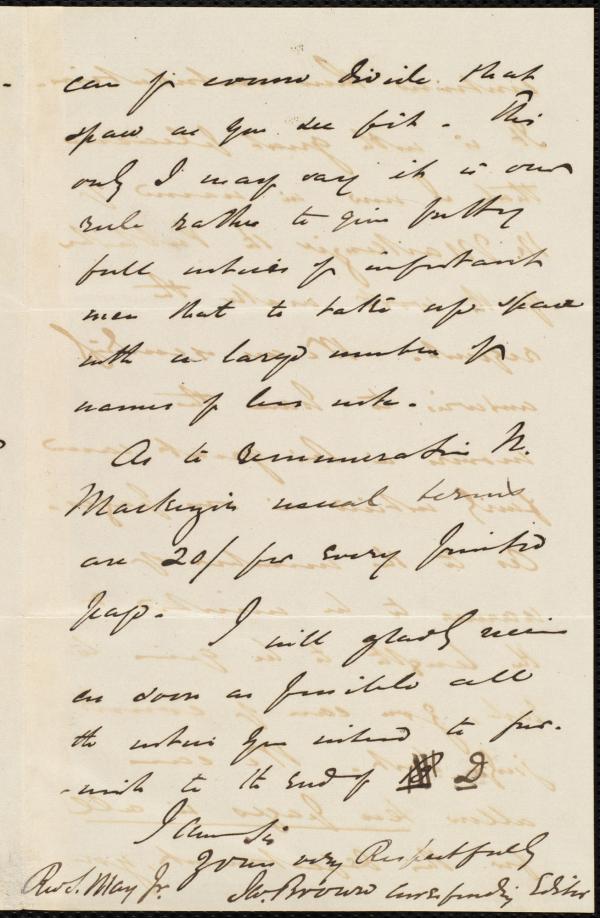 can of course divide that
space as you see fit. This
only I may say it is our
rule rather to give pretty
full notices of important
men that to take up space
with a large number of
names of less note.
As to remuneration W.
Mackenzie's usual terms
are 20/ for every printed
page.
I will gladly receive
as soon as possible all
the notices you intend to fur-
-nish to the end of D
I am Sir
Yours very Respectfully
Rev S. May Jr. Jas. Brown corresponding Editor